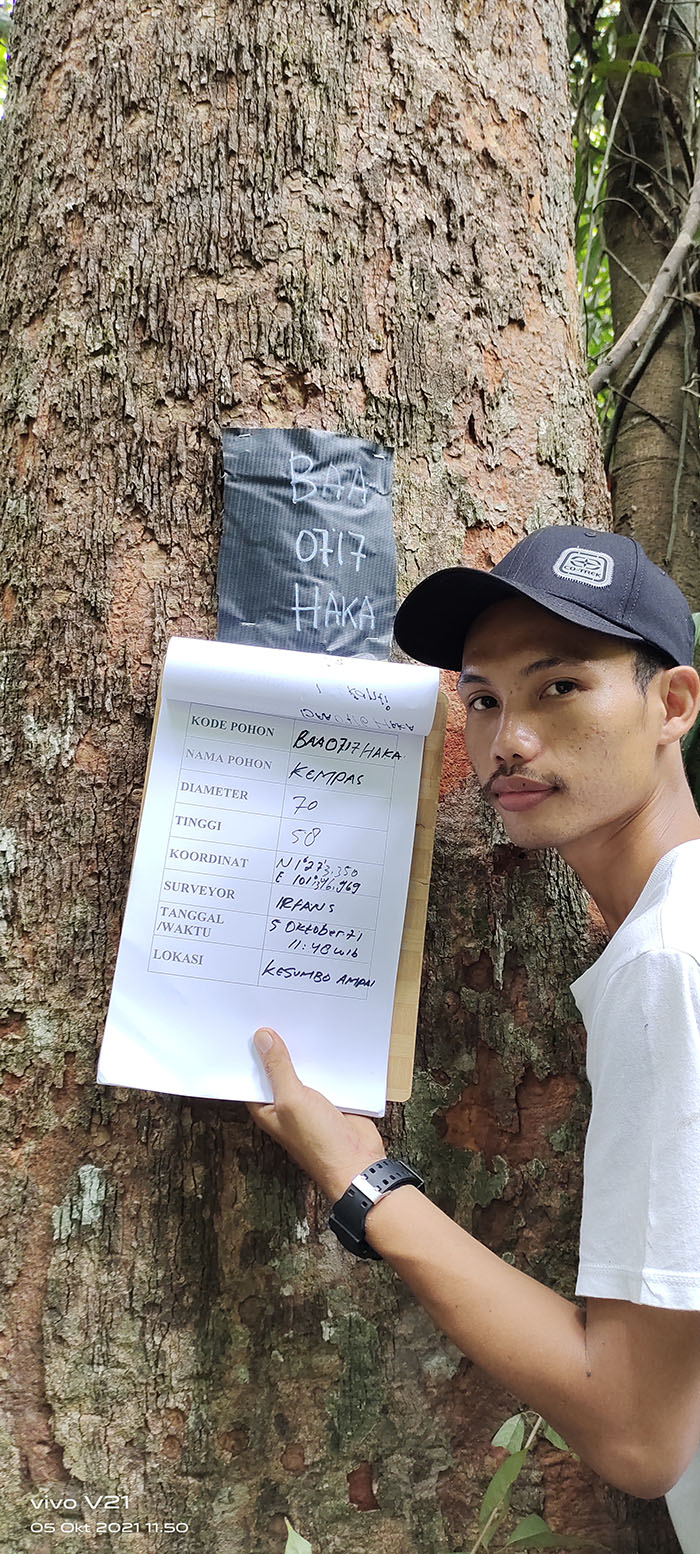 BAA
0717
HAKA
CO-TREK
KODE POHON BAA0717HAKA
NAMA POHON KEMPAS
DIAMETER 70
TINGGI 58
KOORDINAT N 1°27'3,350
E 101°3'6,969
SURVEYOR IRFANS
TANGGAL 5 Oktober 21
/WAKTU 11:48 WIB
LOKASI KESUMBO AMPAI
vivo V21
05 Okt 2021 11:50